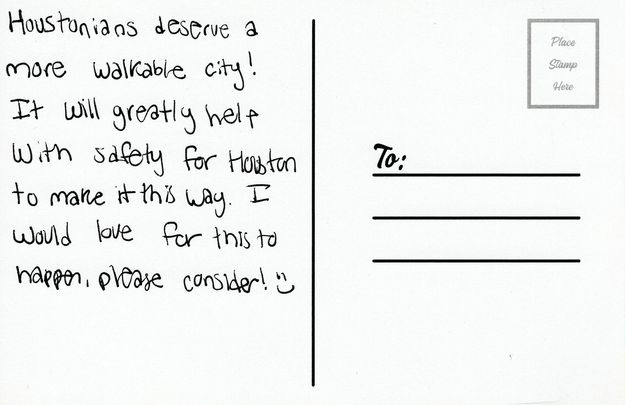 Houstonians deserve a
more walkable city!
It will greatly help
with safety for Houston
to make it this way. I
would love for this to
happen, please consider! :)
Place
Stamp
Here
To: